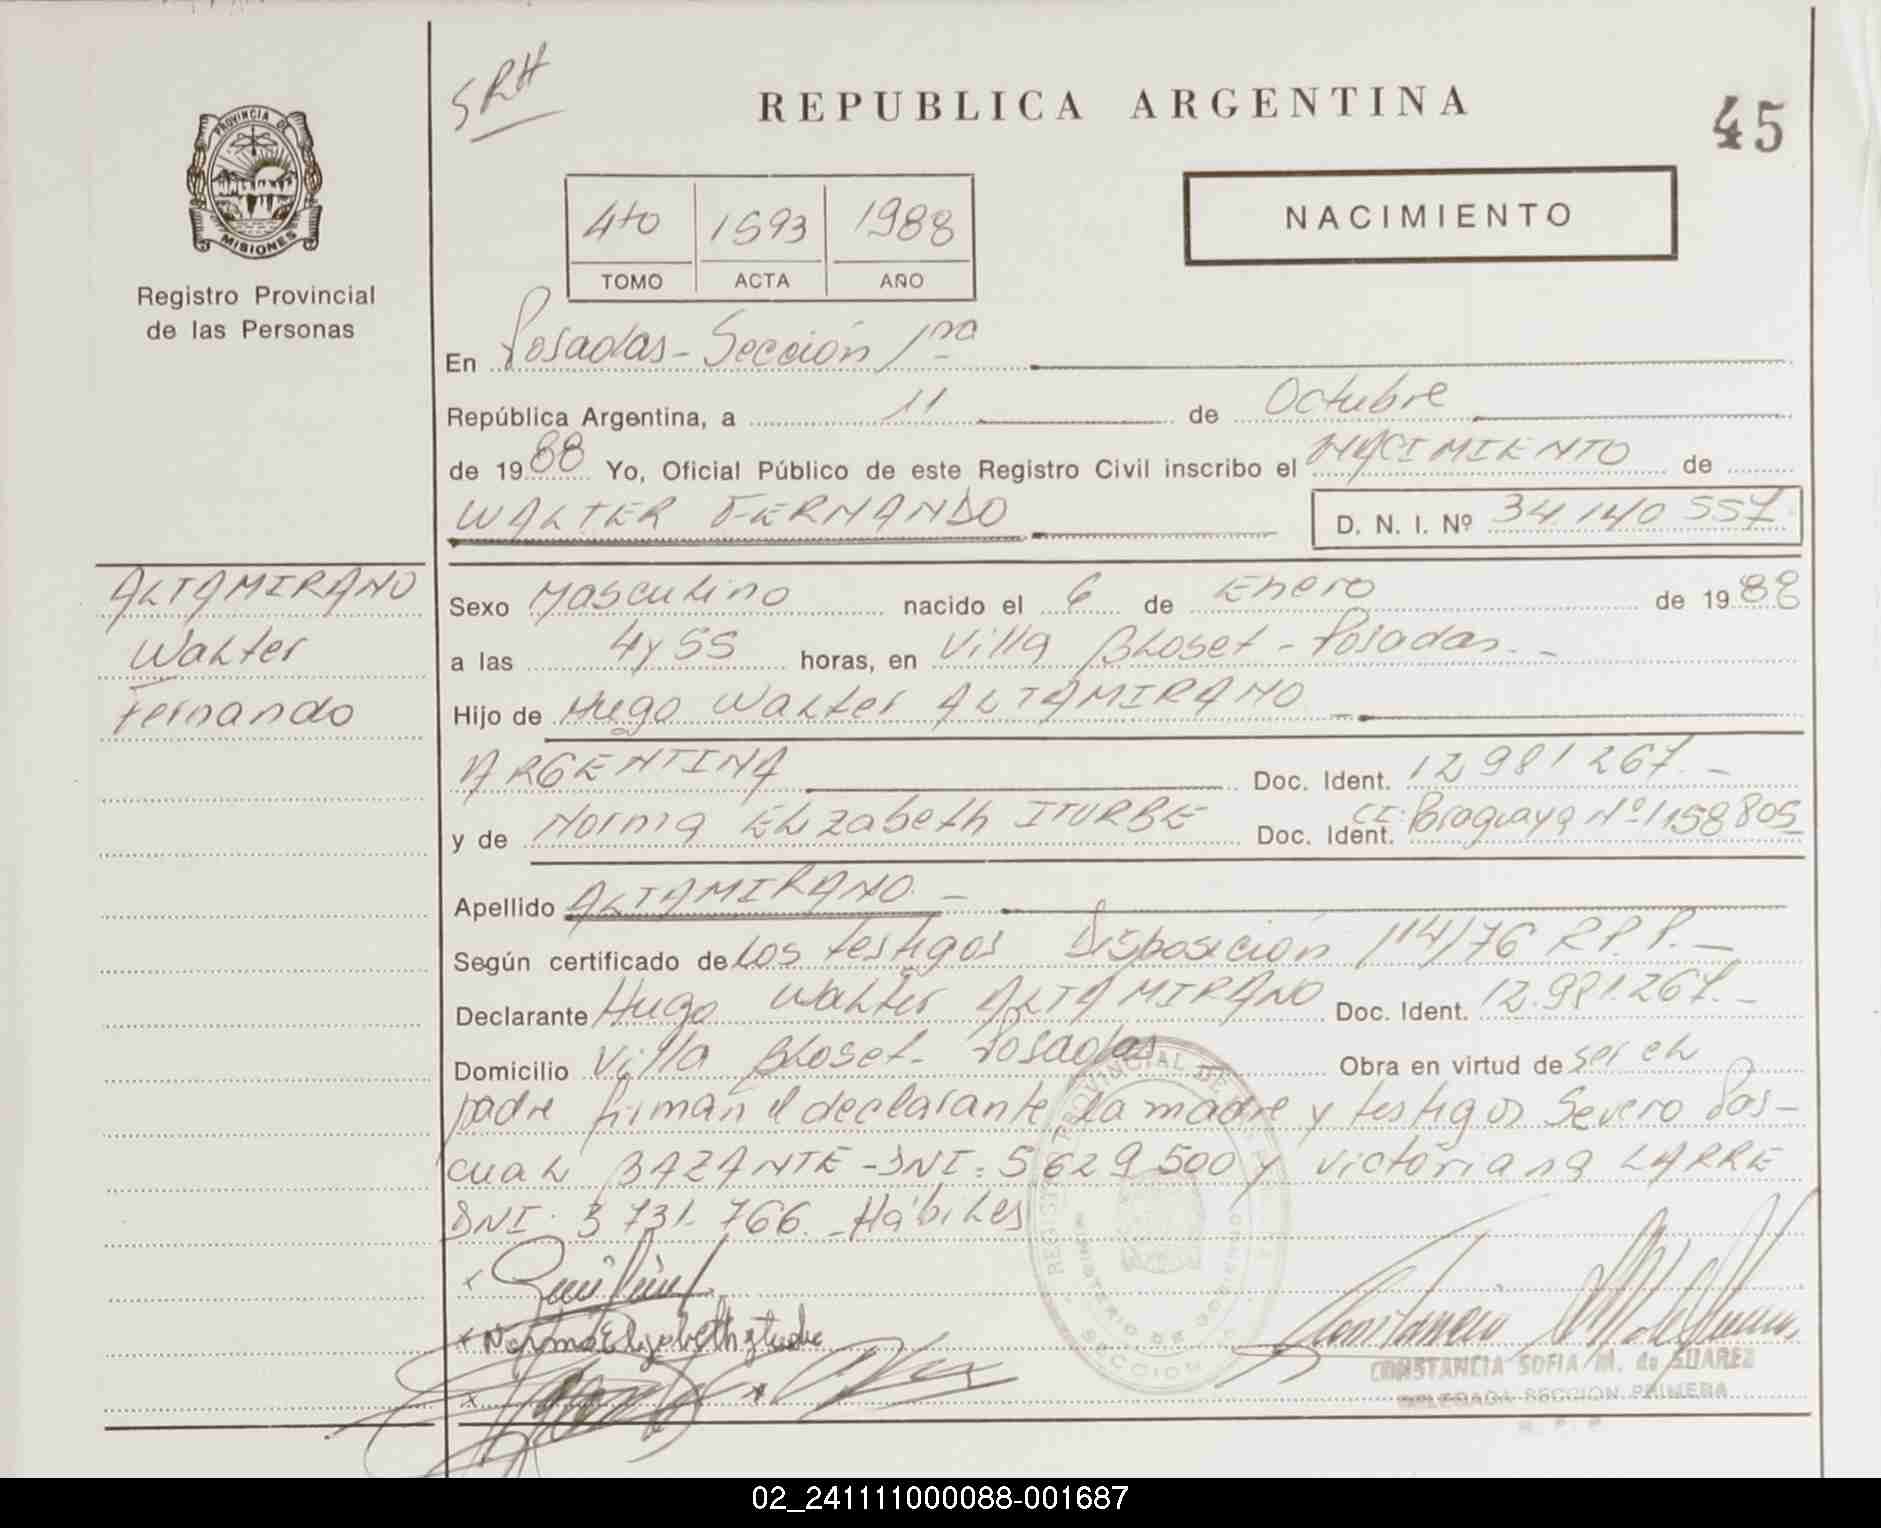 SRH
REPUBLICA ARGENTINA
45
PROVINCIA DE
MISIONES
Registro Provincial
de las Personas
4to 1593 1988
TOMO ACTA AÑO
NACIMIENTO
En Posadas - Sección 1ra
República Argentina, a 11 de Octubre
de 1988 Yo, Oficial Público de este Registro Civil inscribo el NACIMIENTO de
WALTER FERNANDO D. N. I. Nº 34 140 557
ALTAMIRANO
Walter
Fernando
Sexo Masculino nacido el 6 de Enero de 1988
a las 4 y 55 horas, en Villa Bloset - Posadas. -
Hijo de Hugo Walter ALTAMIRANO
ARGENTINA Doc. Ident. 12 981 267. -
y de Norma Elizabeth ITURBE Doc. Ident. CI: Paraguaya Nº 1158805
Apellido ALTAMIRANO -
Según certificado de Los testigos Disposición 114/76 R.P.P. -
Declarante Hugo Walter ALTAMIRANO Doc. Ident. 12.981.267. -
Domicilio Villa Bloset - Posadas Obra en virtud de ser el
padre firman el declarante la madre y testigos Severo Pas-
cual BAZANTE - DNI: 5 629 500 y Victoriana LARRE
DNI: 3 731. 766. - Hábiles
Norma Elizabeth Iturbe
CONSTANCIA SOFIA M. de SUAREZ
DELEGADA SECCION PRIMERA
R. P. P.
02_241111000088-001687